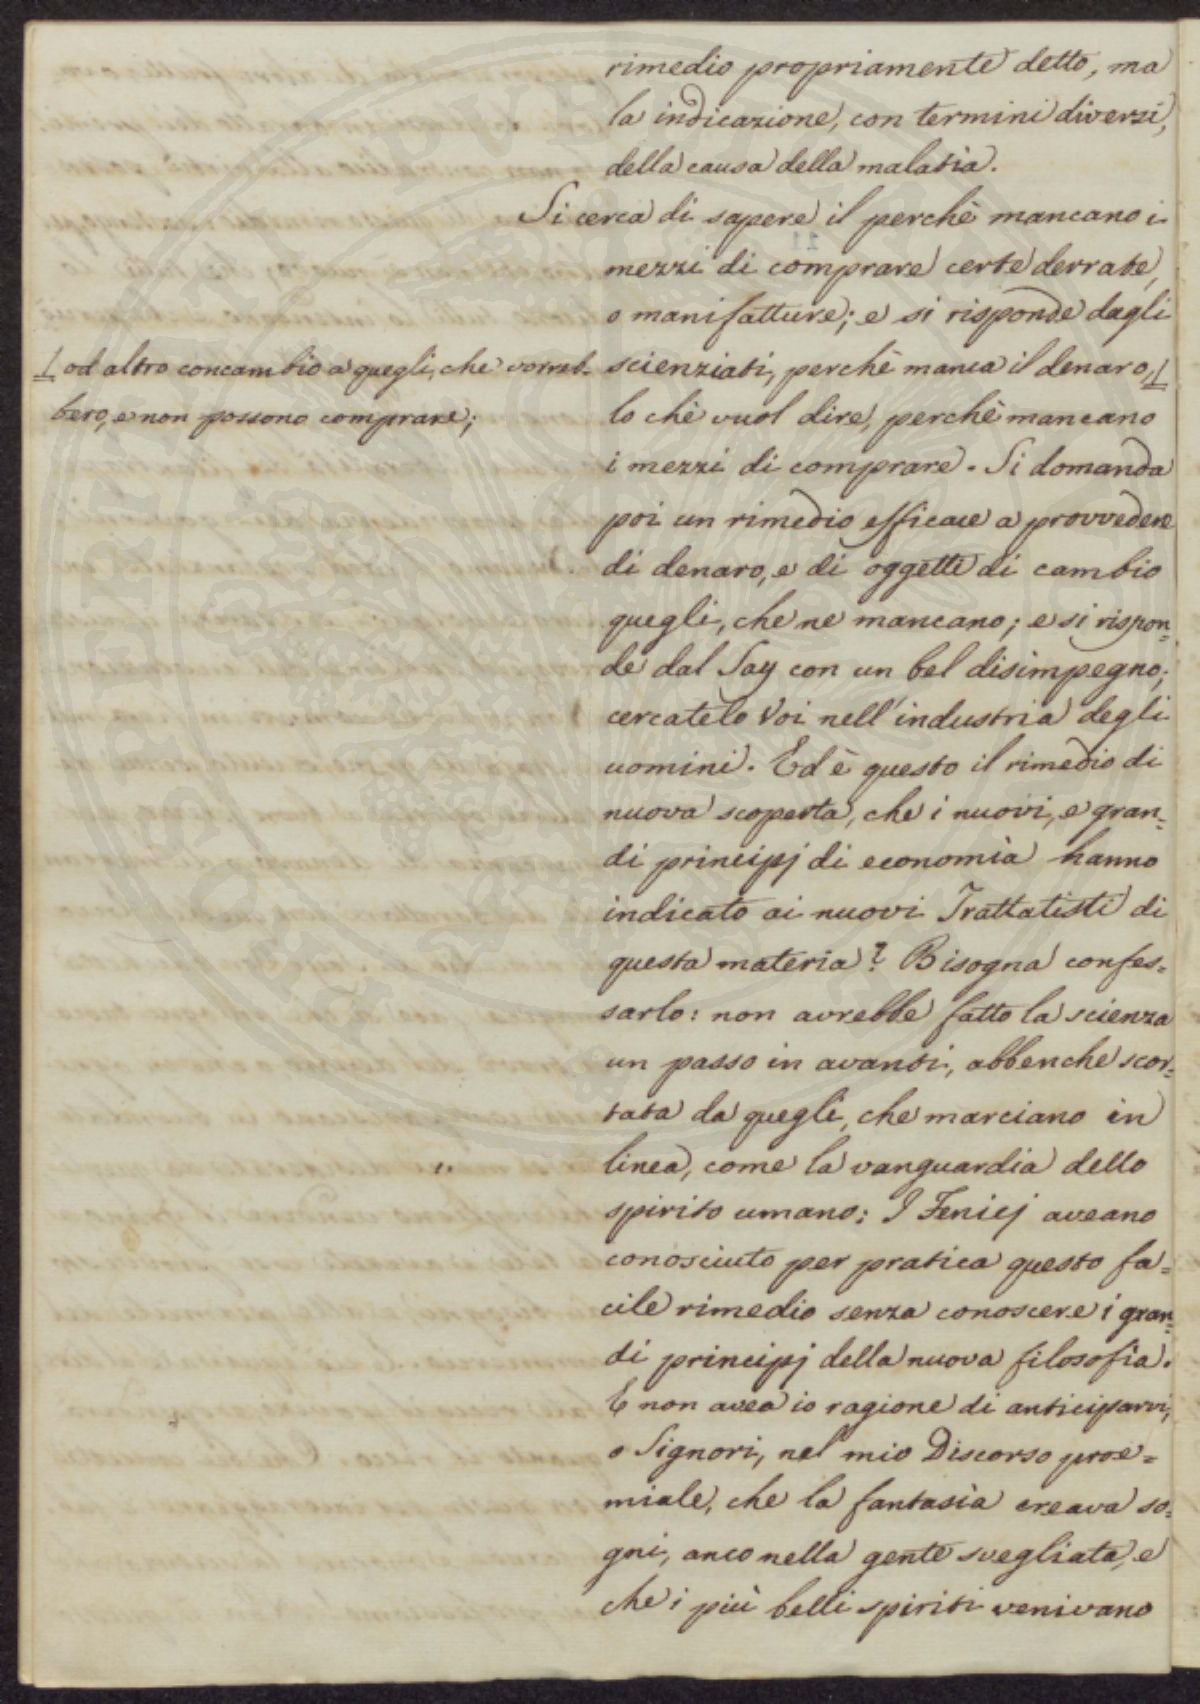 rimedio propriamente detto, ma
la indicazione, con termini diversi,
della causa della malatìa.
Si cerca di sapere il perchè mancano i
mezzi di comprare certe derrate,
o manifatture; e si risponde dagli
scienziati, perchè manca il denaro,
od altro concambio a quegli, che vorreb-
bero, e non possono comprare;
lo chè vuol dire, perchè mancano
i mezzi di comprare. Si domanda
poi un rimedio efficace a provvedere
di denaro, e di oggetti di cambio
quegli, che ne mancano; e si rispon=
de dal Say con un bel disimpegno;
cercatelo Voi nell'industria degli
uomini. Ed è questo il rimedio di
nuova scoperta, che i nuovi, e gran=
di principj di economìa hanno
indicato ai nuovi Trattatisti di
questa materia? Bisogna confes=
sarlo: non avrebbe fatto la scienza
un passo in avanti, abbenche scor=
tata da quegli, che marciano in
linea, come la vanguardia dello
spirito umano: I Fenicj aveano
conosciuto per pratica questo fa=
cile rimedio senza conoscere i gran=
di principj della nuova filosofìa.
E non avea io ragione di anticiparvi,
o Signori, nel mio Discorso proe=
miale, che la fantasìa creava so=
gni, anco nella gente svegliata, e
che i più belli spiriti venivano